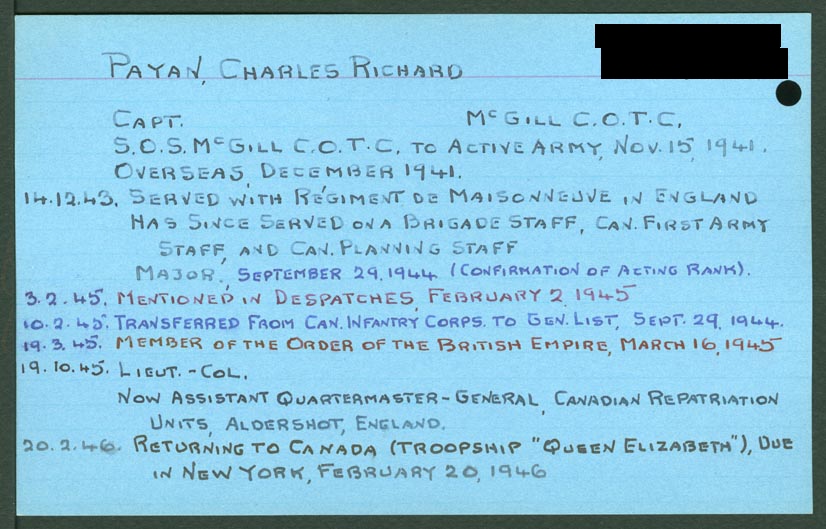 PAYAN, CHARLES RICHARD
CAPT. McGILL C.O.T.C.
S.O.S. McGILL C.O.T.C. TO ACTIVE ARMY, NOV. 15, 1941.
OVERSEAS, DECEMBER 1941.
14.12.43. SERVED WITH RÉGIMENT DE MAISONNEUVE IN ENGLAND
HAS SINCE SERVED ON A BRIGADE STAFF, CAN. FIRST ARMY
STAFF, AND CAN. PLANNING STAFF
MAJOR, SEPTEMBER 29, 1944 (CONFIRMATION OF ACTING RANK).
3.2.45. MENTIONED IN DESPATCHES, FEBRUARY 2, 1945
10.2.45. TRANSFERRED FROM CAN. INFANTRY CORPS. TO GEN. LIST, SEPT. 29, 1944.
19.3.45. MEMBER OF THE ORDER OF THE BRITISH EMPIRE, MARCH 16, 1945
19.10.45. LIEUT.-COL.
NOW ASSISTANT QUARTERMASTER-GENERAL, CANADIAN REPATRIATION
UNITS, ALDERSHOT, ENGLAND.
20.2.46. RETURNING TO CANADA (TROOPSHIP "QUEEN ELIZABETH"), DUE
IN NEW YORK, FEBRUARY 20, 1946